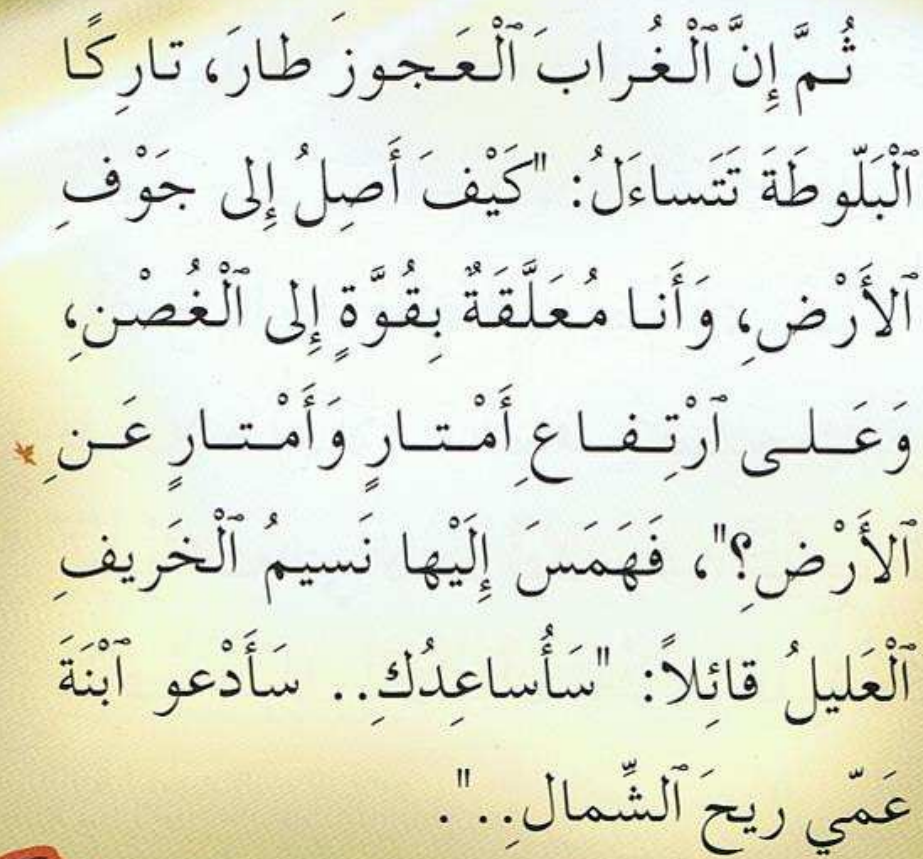 ثُمَّ إِنَّ ٱلْغُرابَ ٱلْعَجوزَ طارَ، تارِكًا
ٱلْبَلّوطَةَ تَتَساءَلُ: "كَيْفَ أَصِلُ إِلى جَوْفِ
ٱلأَرْضِ، وَأَنا مُعَلَّقَةٌ بِقُوَّةٍ إِلى ٱلْغُصْنِ،
وَعَلى ٱرْتِفاعِ أَمْتارٍ وَأَمْتارٍ عَنِ
ٱلأَرْضِ؟"، فَهَمَسَ إِلَيْها نَسيمُ ٱلْخَريفِ
ٱلْعَليلُ قائِلاً: "سَأُساعِدُكِ.. سَأَدْعو ٱبْنَةَ
عَمّي ريحَ ٱلشِّمالِ..".